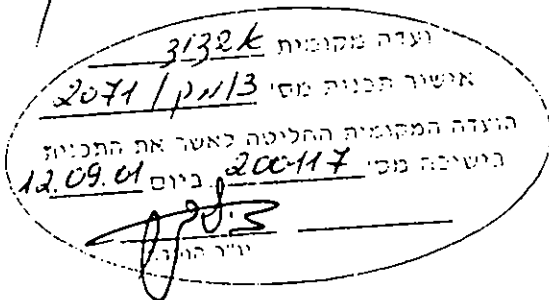 ועדה מקומית אשדוד
אישור תכנית מס' 3/מק/2071
הועדה המקומית החליטה לאשר את התכנית
בישיבה מס' 200117 ביום 12.09.01
יו"ר הועדה